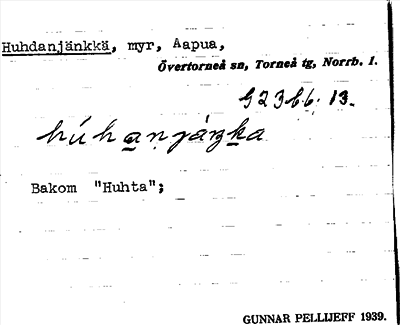 Huhdanjänkkä, myr, Aapua,
Övertorneå sn, Torneå tg, Norrb. l.
13.
húhanjáŋka
Bakom "Huhta";
GUNNAR PELLIJEFF 1939.